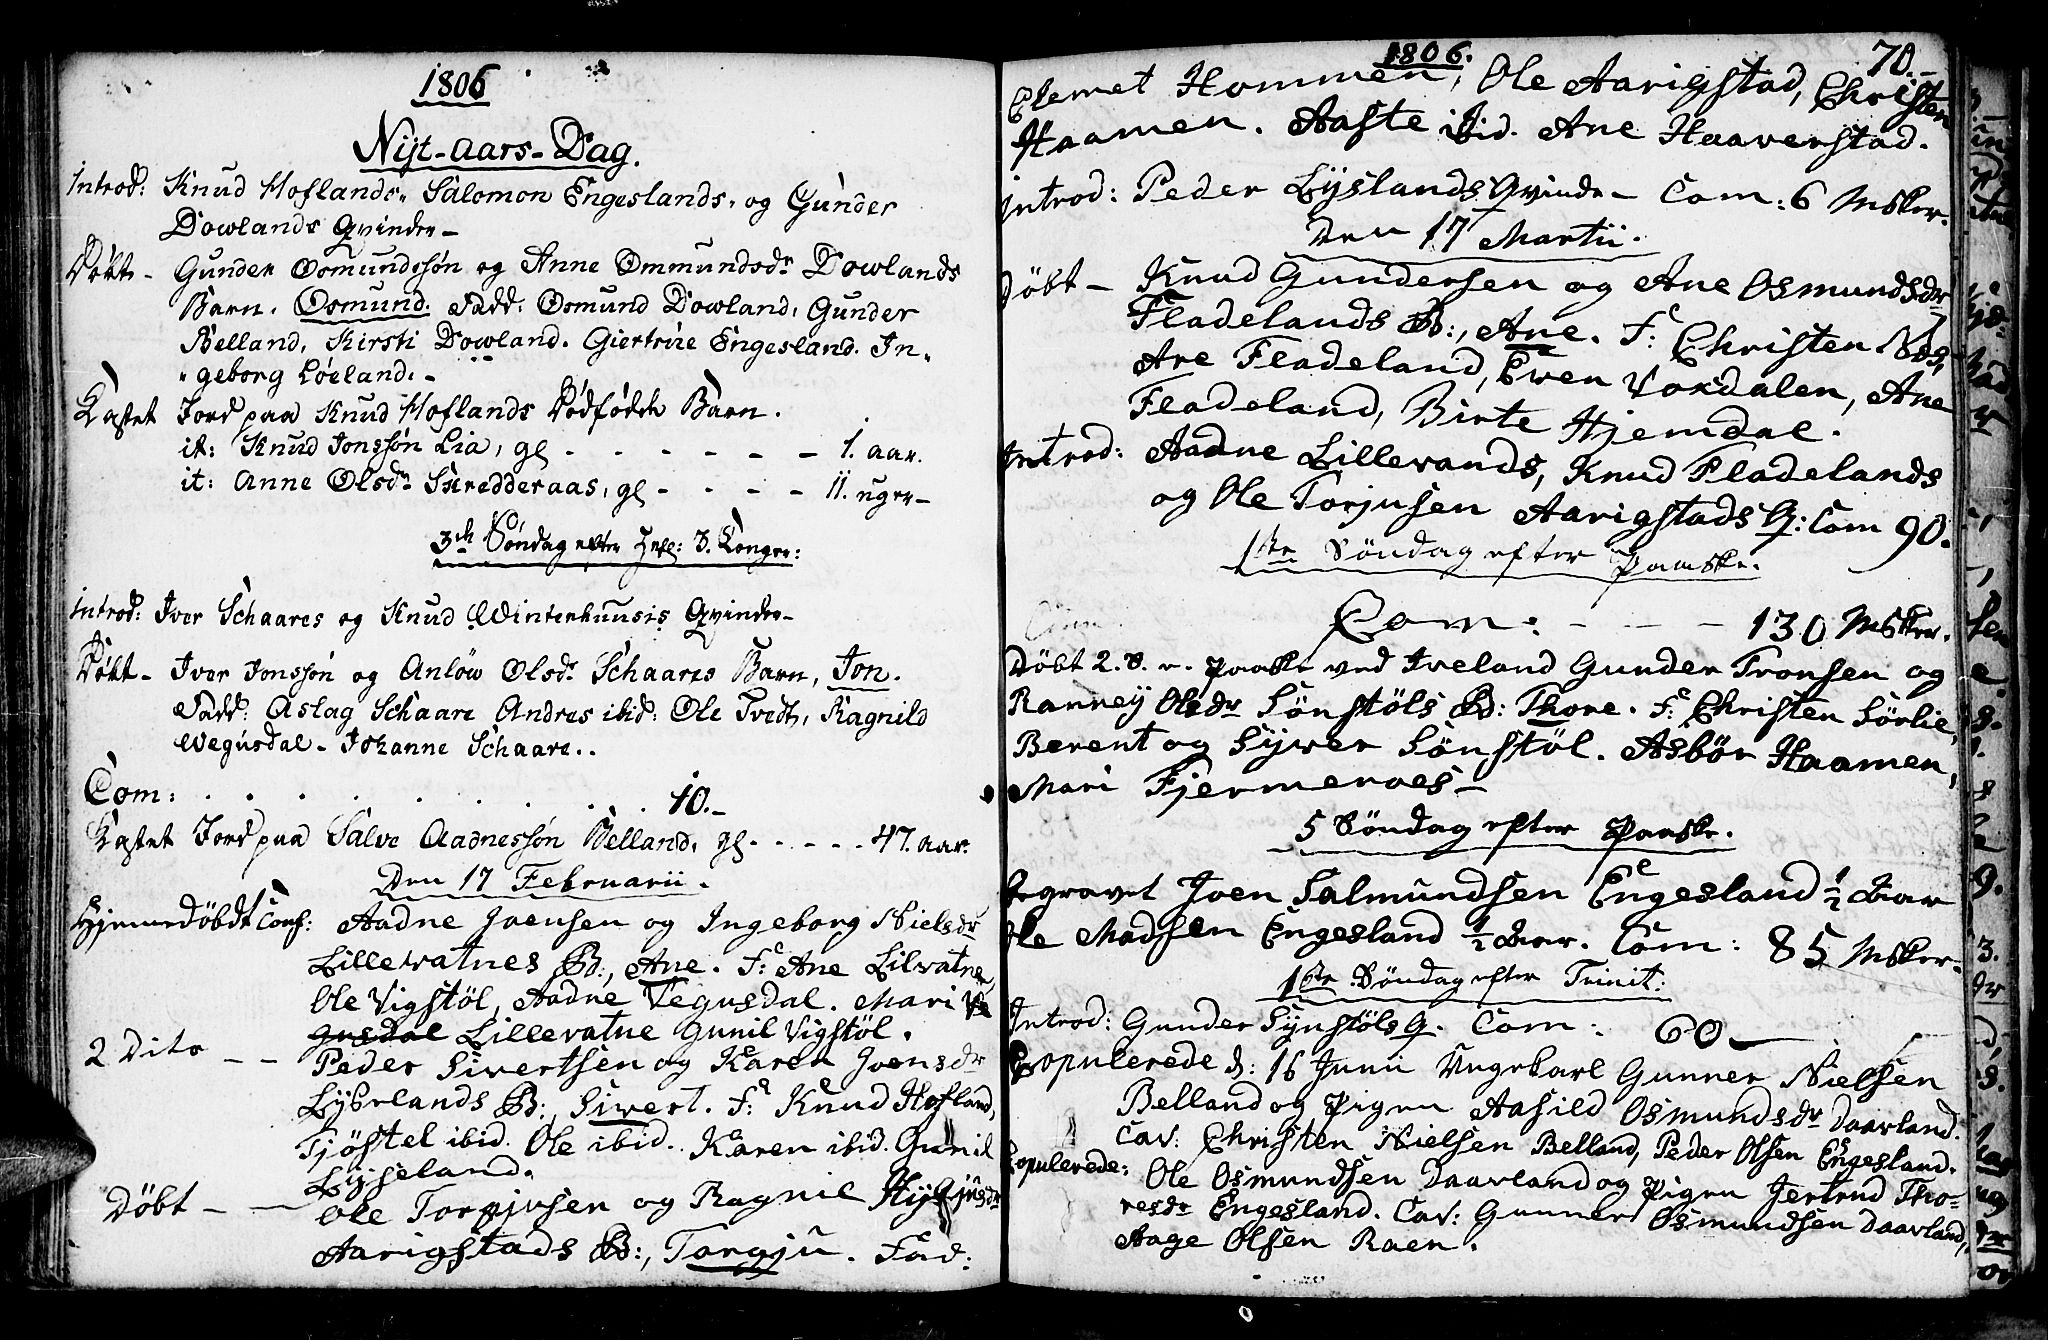 1806
Nyt-aars-Dag.
Introd: Knud Hoflands, Salomon Engeslands, og Gunder
Dowlands Qvinder-
Döbt- Gunder Osmundssön og Anne Ommundsdr Dowlands
Barn. Osmund. Fadd: Osmund Dowland, Gunder
Belland, Kirsti Dowland. Giertrue Engesland. In-
geborg Löeland.-
Kastet Jord paa Knud Hoflands Dödfödde Barn.
it: Knud Jonssön Lia, gl - - - - - - 1. aar.
it: Anne Olsdr Skredderaas, gl - - - - 11. uger-
3die Söndag efter Hel: 3. Konger:
Introd: Iver Schaares og Knud Winterhuusis Qvinder-
Döbt- Iver Jonssön og Anlöw Olsdr Schaares Barn, Jon.
Fadd: Aslag Schaare Andres ibid: Ole Tvedt, Ragnild
Wegusdal- Johanne Schaare..
Com: . . . . . . . . . 10.-
Kastet Jord paa Salve Aadnessön Belland, gl. . . . . 47. aar.
Den 17 Februarii.
Hjemmedöbdt Conf: Aadne Joensen og Ingeborg Nielsdr
Lillevatnes B:, Ane. F: Ane Lilvatne,
Ole Vigstöl, Aadne Vegusdal. Mari Ve
gusdal Lillevatne Gunil Vigstöl.
2 Dito - - Peder Sivertsen og Karen Joensdr
Lyserlands B:, Sivert. F: Knud Hofland,
Tjöstel ibid. Ole ibid. Karen ibid. Gunil
Lysseland.
Döbt - - Ole Torgjusen og Ragnil
Aarigstads B:, Torgju. Fad:
1806. 70.-
Clemet Hommen, Ole Aarigstad, Christen
Haamen. Aaste ibid. Ane Haaverstad.
Introd: Peder Lyslands Qvinde- Com: 6 Msker.
Den 17 Martii.
Döbt - Knud Gundersen og Ane Osmundsdr
Fladelands B:, Ane. F: Christen
Are Fladeland, Even Vordalen, Ane
Fladeland, Birte Hjemdal.
Introd: Aadne Lillevands, Knud Fladelands
og Ole Torjusen Aarigstads Q: Com 90.
1ste Söndag efter Paaske.
Com: - - - 130 Msker.
Döbt 2. S. e. Paaske ved Iveland Gunder Tronsen og
Ranney Olsdr Sönstöls B: Thore. F: Christen Sörlie,
Berent og Syver Sönstöl. Asbör Haamen,
Mari Fjermeroes-
5 Söndag efter Paaske.
Begravet Joen Salmundsen Engesland 1/2 Aar
Ole Madsen Engesland 1/2 Aar. Com: 85 Msker.
1ste Söndag efter Trinit:
Introd: Gunder Synstöls Q. Com: 60-
Copulerede d: 16 Junii Ungekarl Gunner Nielsen
Belland og Pigen Aasild Osmundsdr Daarland.
Cav: Christen Nielsen Belland, Peder Olsen Engesland.
Copulerede: Ole Osmundsen Daarland og Pigen Jertrud Tho-
resdr Engesland. Cav: Gunner Osmundsen Daarland,
Aage Olsen Raen.